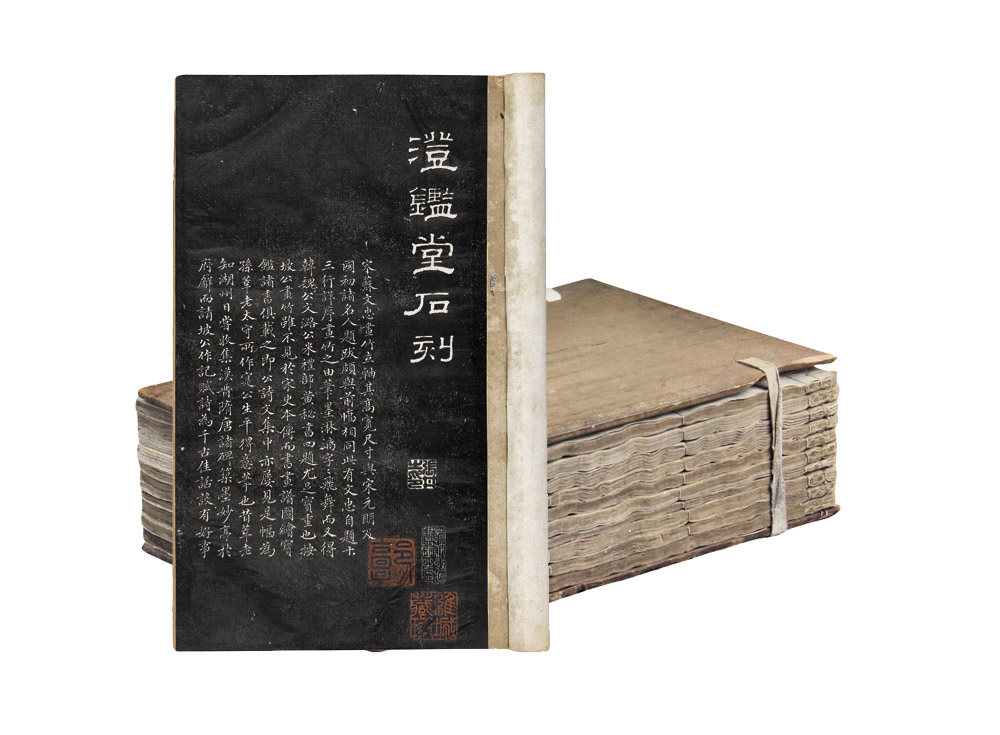 澄鑑堂石刻
宋蘇文忠畫竹立軸其高寬尺寸與宋元明及
國初諸名人題跋頗與前幅相同此有文忠自題十
三行詳序畫竹之由筆墨淋漓字字飛舞而又得
韓魏公文潞公米禮部黃秘書四題尤足寶重也按
坡公畫竹雖不見於宋史本傳而書畫譜圖繪寶
鑑諸書俱載之即公詩文集中亦屢見是幅為
孫莘老太守所作寔公生平得意筆也昔莘老
知湖州日嘗收集漢晉隋唐諸碑築墨妙亭於
府廨而請坡公作記賦詩為千古佳話談有好事